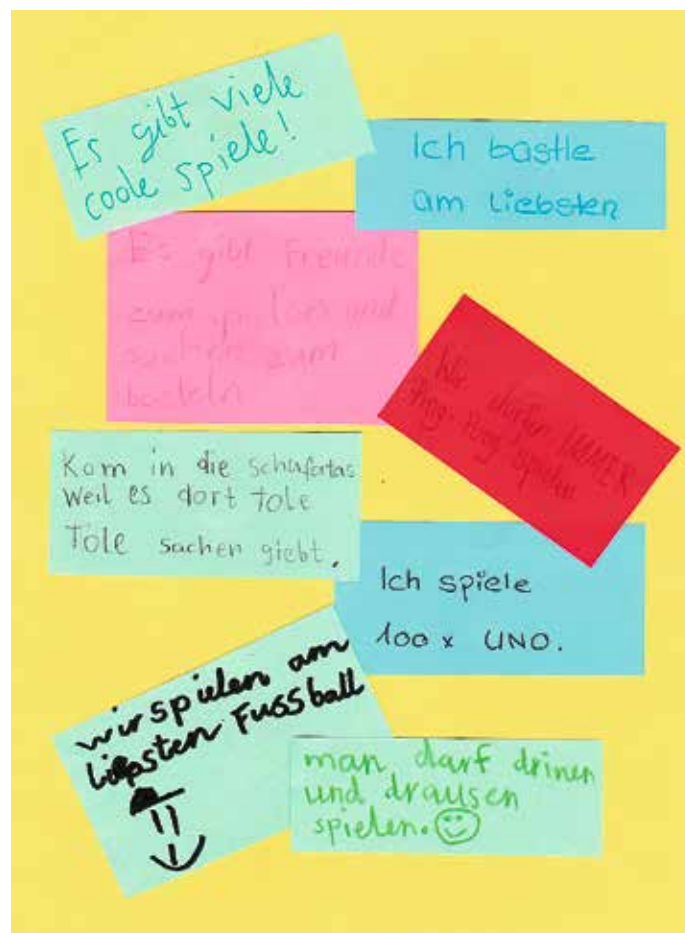 Es gibt viele
coole spiele!
Ich bastle
am liebsten
Es gibt Freunde
zum spielen und
sachen zum
basteln
Wir dürfen IMMER
Ping-Pong spielen
Kom in die Schufertas
Weil es dort tole
Tole sachen giebt.
Ich spiele
100 x UNO.
wir spielen am
liepsten Fussball
man darf drinen
und drausen
spielen.